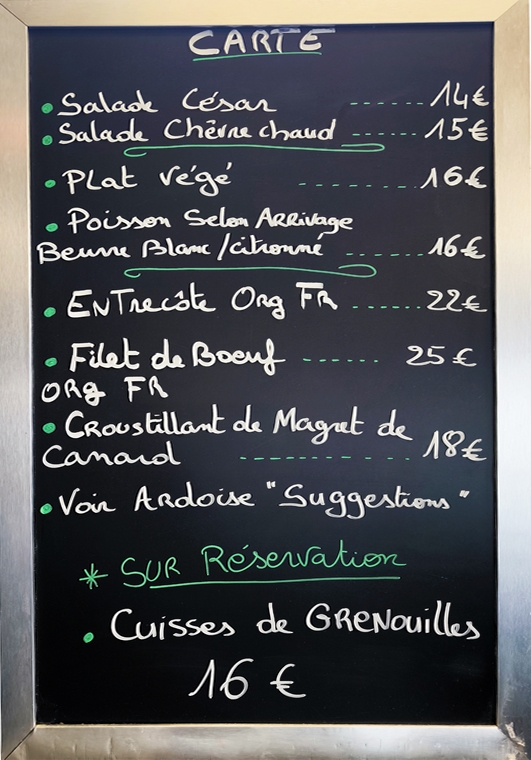 CARTE
• Salade César ------ 14€
• Salade Chèvre chaud ------ 15€
• Plat végé -------- 16€
• Poisson Selon ARRivage
Beurre Blanc / citronné ------ 16€
• EnTrecôte Org FR ------ 22€
• Filet de Boeuf ------ 25€
ORg FR
• Croustillant de Magret de
Canard ---------- 18€
• Voir Ardoise "Suggestions"
* SUR Réservation
• Cuisses de GRENouilles
16 €